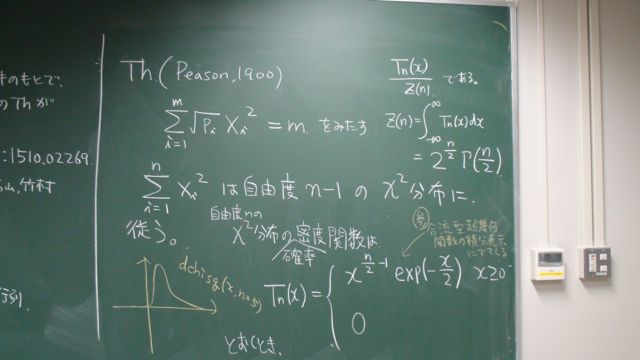 のもとで、
の Th が
:1510.02269.
山,竹村
Th. (Peason, 1900)
\sum_{i=1}^{m} \sqrt{P_i} X_i^2 = m. をみたす
\sum_{i=1}^{n} X_i^2 は自由度 n-1 の χ^2 分布に
従う。
自由度nの
χ^2 分布の密度関数は
確率
Tn(x) = { x^{\frac{n}{2}-1} exp(-\frac{x}{2}) x≥0
0
とおくとき.
\frac{Tn(x)}{Z(n)} である。
Z(n) = \int_{-∞}^{∞} Tn(x)dx
= 2^{\frac{n}{2}} Γ(\frac{n}{2})
参
合流型超幾何
関数の積分表示
にでてくる
dchisq(x, n=5)